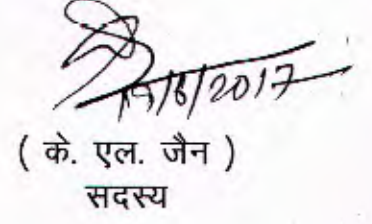 /6/2017
( के. एल. जैन )
सदस्य